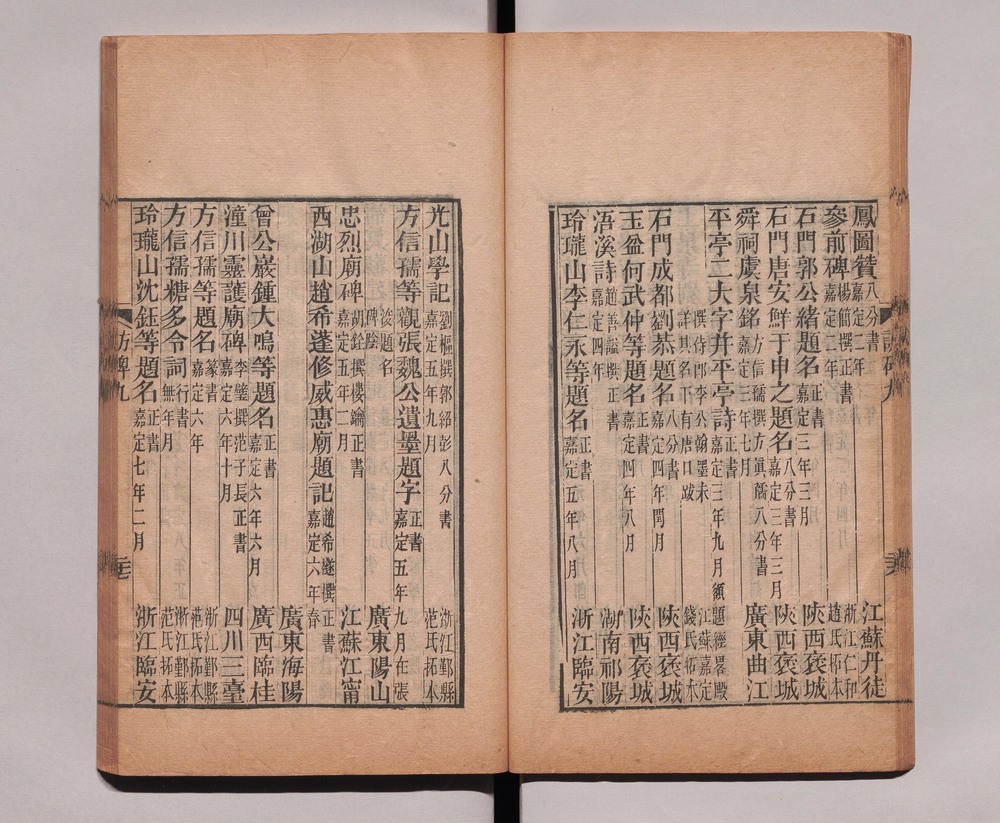 鳳圖贊 八分書 嘉定二年 江蘇丹徒
參前碑 楊簡撰正書 嘉定二年 浙江仁和趙氏拓本
石門郭公緒題名 正書 嘉定三年三月 陝西褒城
石門唐安鮮于申之題名 八分書 嘉定三年三月 陝西褒城
舜祠虞泉銘 方信孺撰方真孺八分書 嘉定三年七月 廣東曲江
平亭二大字幷平亭詩 正書 嘉定三年九月額題經畧殿
撰侍郎李公翰墨末詳其名下有唐口跋 江蘇嘉定錢氏拓本
石門成都劉恭題名 八分書 嘉定四年閏月 陝西褒城
玉盆何武仲等題名 正書 嘉定四年八月 陝西褒城
浯溪詩 趙善謐撰正書 嘉定四年 湖南祁陽
玲瓏山李仁永等題名 正書 嘉定五年八月 浙江臨安
訪碑九
光山學記 劉樞撰郭紹彭八分書 嘉定五年九月 浙江鄞縣范氏拓本
方信孺等觀張魏公遺墨題字 正書 嘉定五年九月在張
浚題名碑陰 廣東陽山
忠烈廟碑 胡銓撰樓鑰正書 嘉定五年二月 江蘇江甯
西湖山趙希蓬修威惠廟題記 趙希蓬撰正書 嘉定六年春
廣東海陽
曾公巖鍾大鳴等題名 正書 嘉定六年六月 廣西臨桂
潼川靈護廟碑 李壁撰范子長正書 嘉定六年十月 四川三臺
方信孺等題名 篆書 嘉定六年 浙江鄞縣范氏拓本
方信孺糖多令詞 行書 無年月 浙江鄞縣范氏拓本
玲瓏山沈鈺等題名 正書 嘉定七年二月 浙江臨安
訪碑九